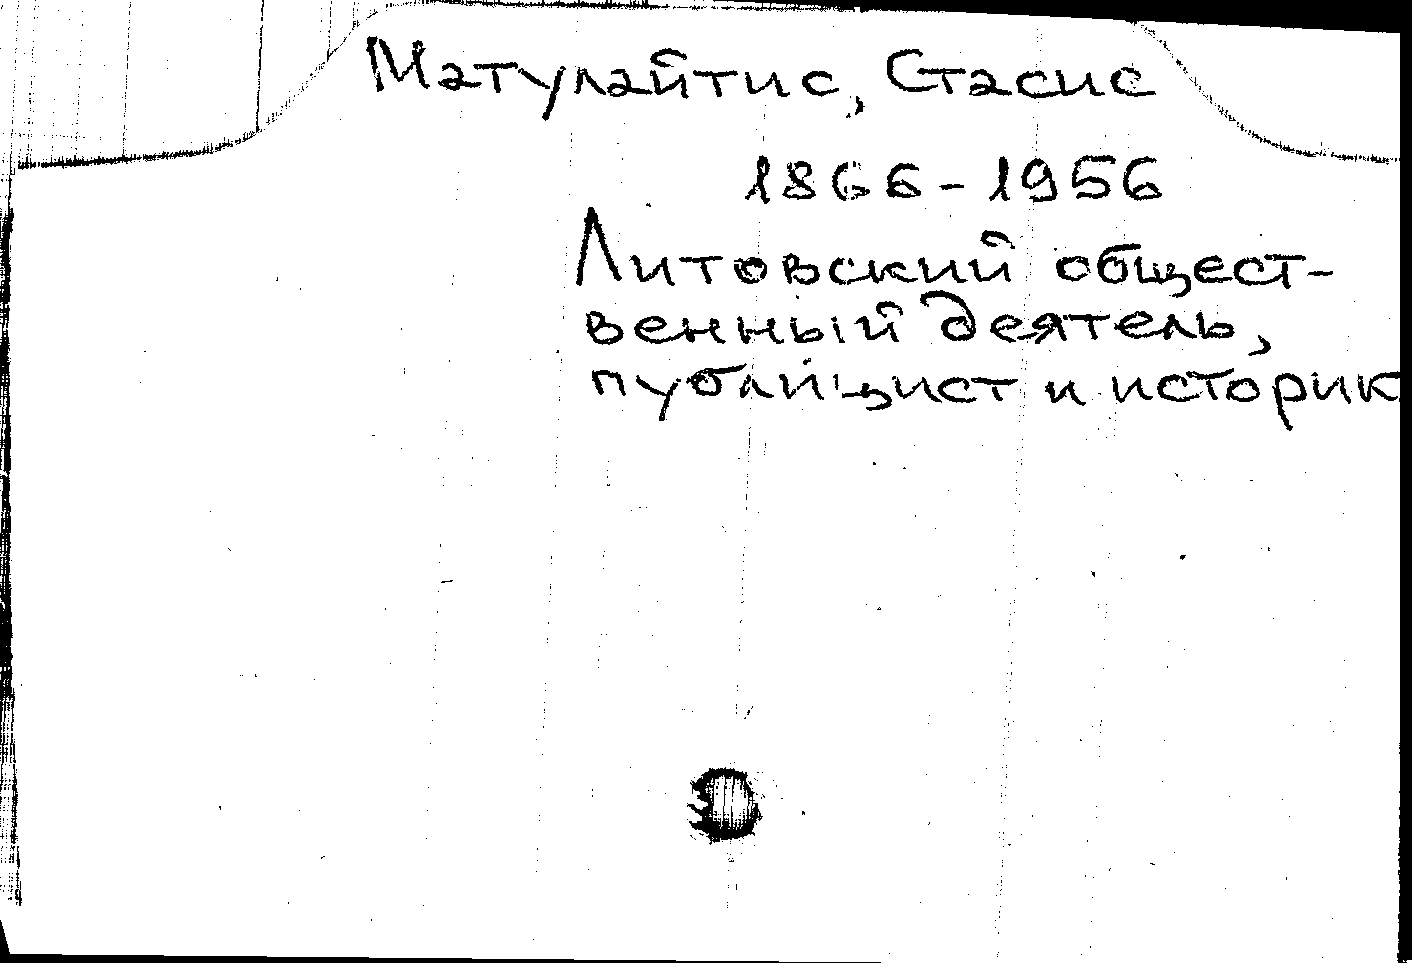 Матулайтис, Стасис
1866-1956
Литовский общест-
венный деятель,
публицист и историк